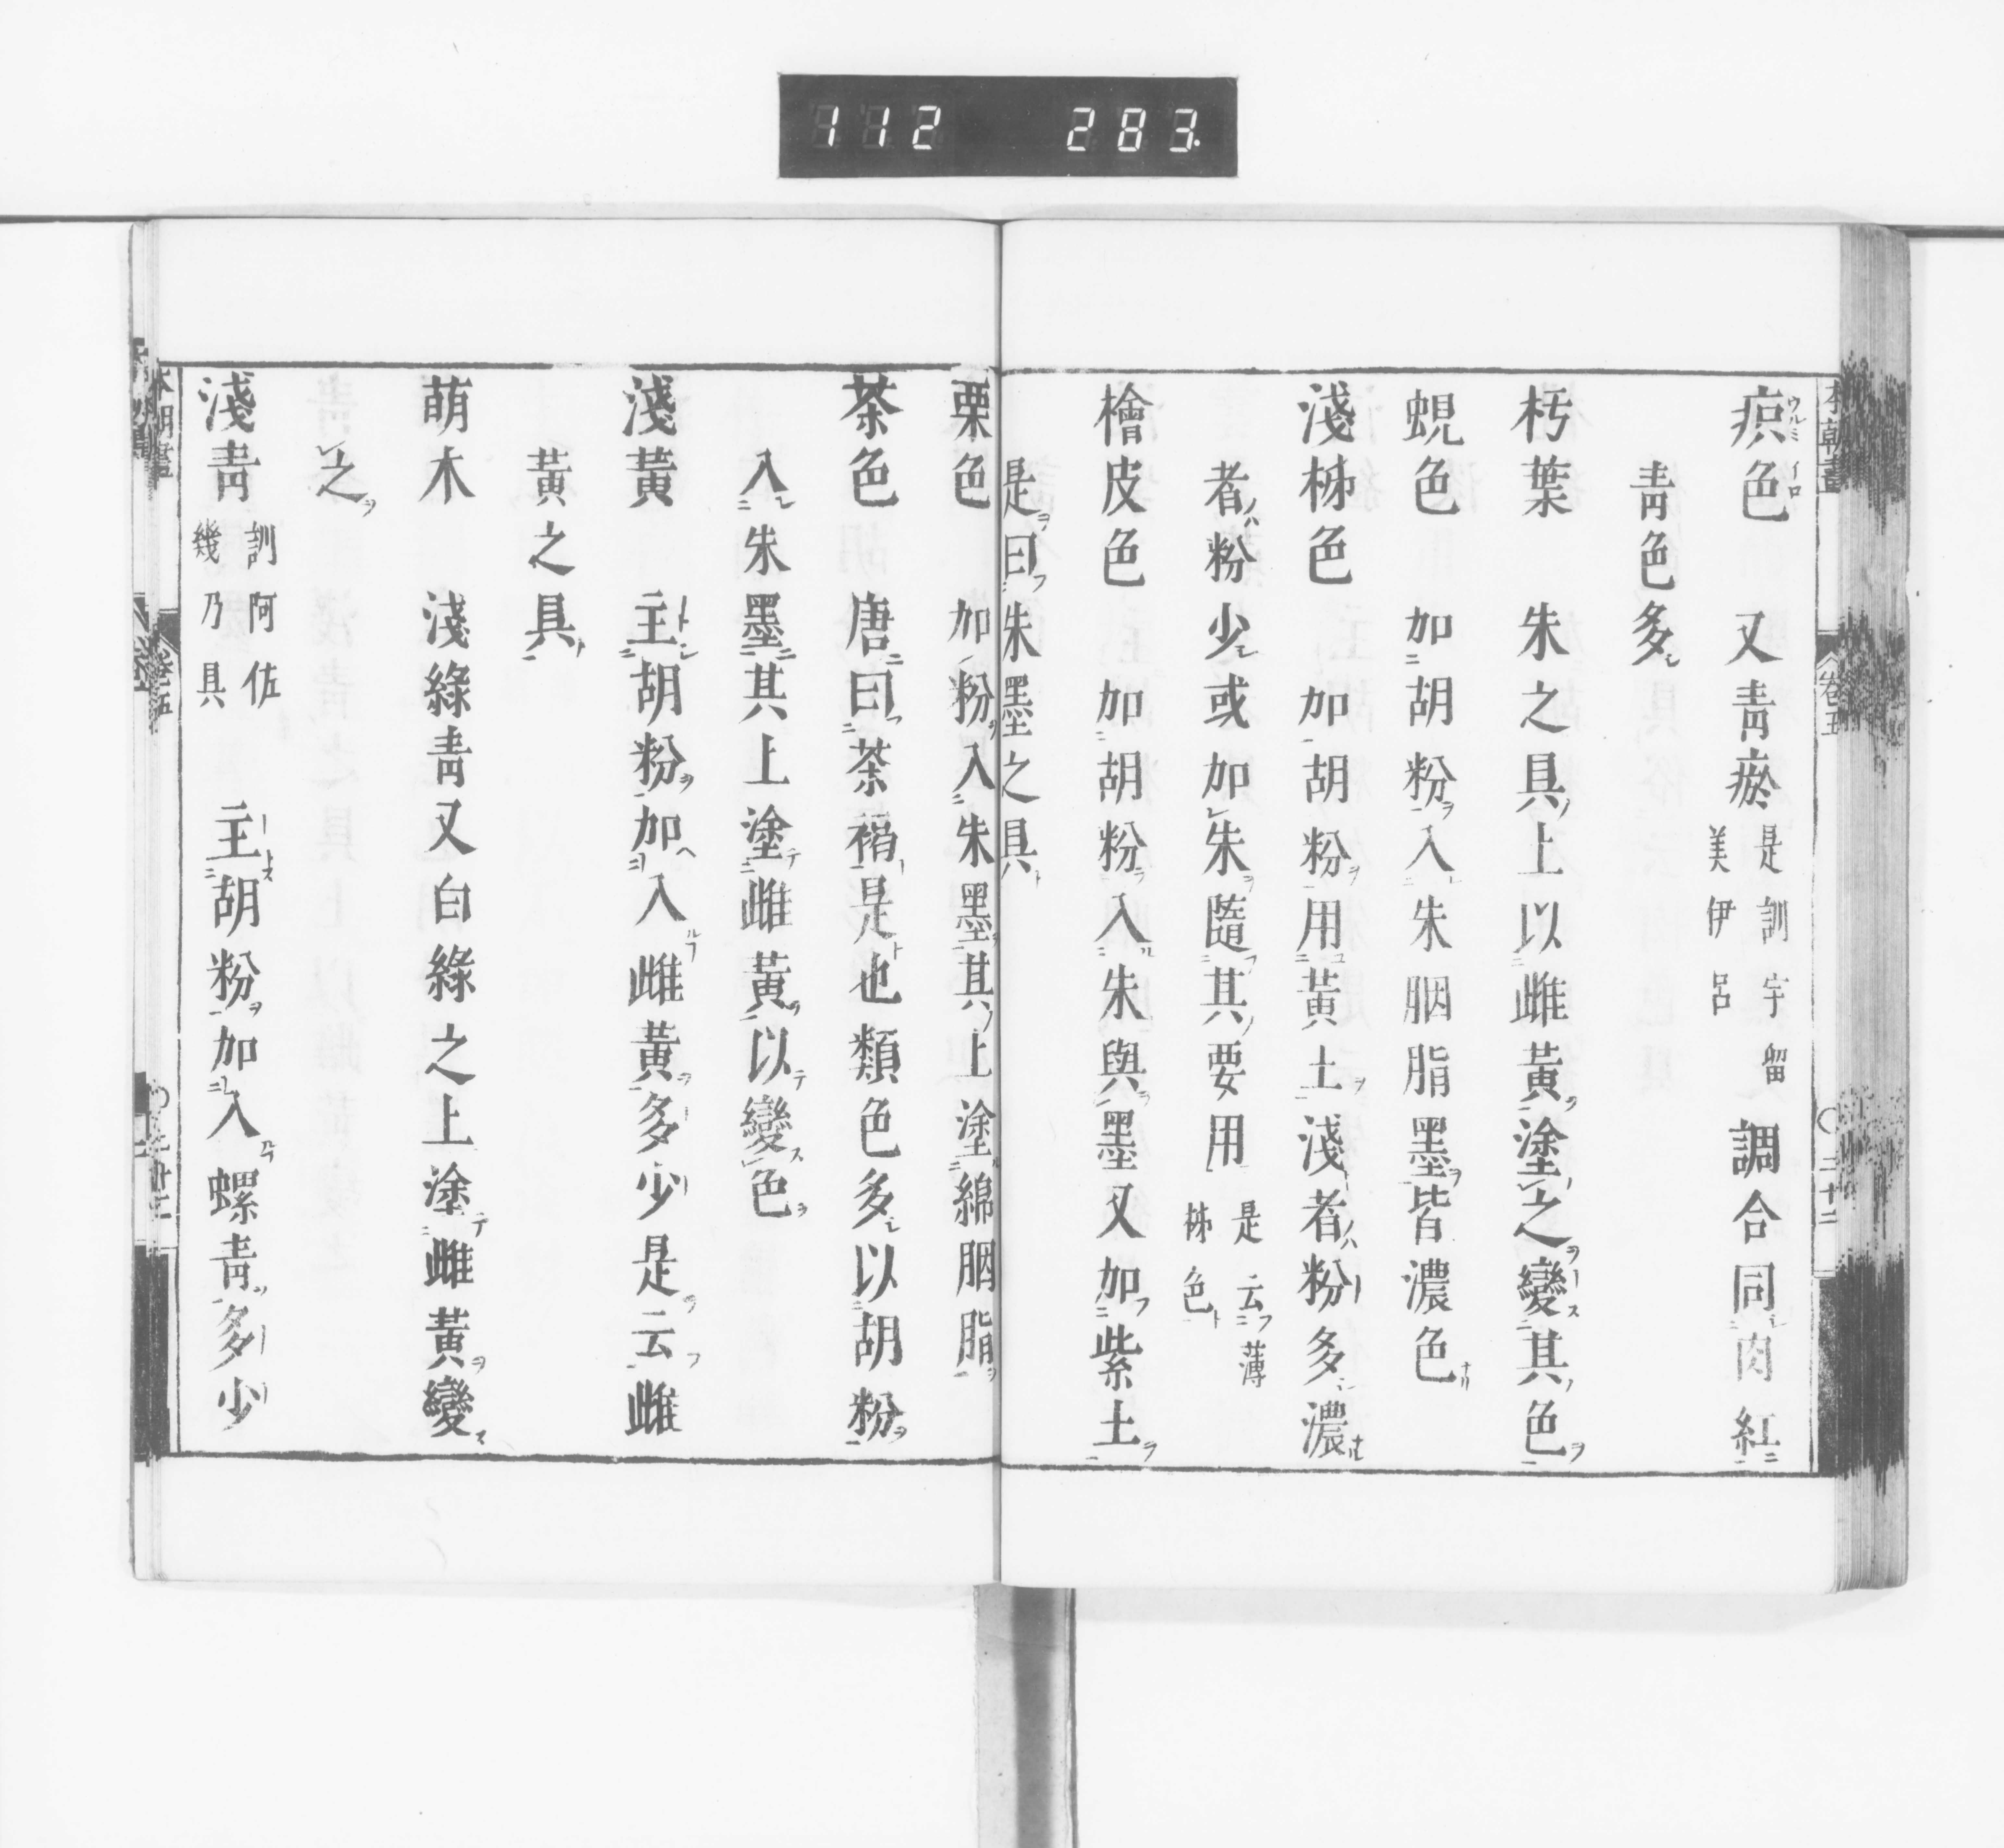 112 283
疻色 又青瘀 是訓宇留美伊呂 調合同肉紅
青色多
朽葉 朱之具上以雌黃塗之變其色
蜆色 加胡粉入朱胭脂墨皆濃色
淺柹色 加胡粉用黃土淺者粉多濃
者粉少或加朱隨其要用 是云薄柹色
檜皮色 加胡粉入朱與墨又加紫土
是曰朱墨之具
栗色 加粉入朱墨其上塗綿胭脂
茶色 唐曰茶褐是也類色多以胡粉
入朱墨其上塗雌黃以變色
淺黃 主胡粉加入雌黃多少是云雌
黃之具
萌木 淺綠青又白綠之上塗雌黃變
之
淺青 訓阿佐幾乃具 主胡粉加入螺青多少